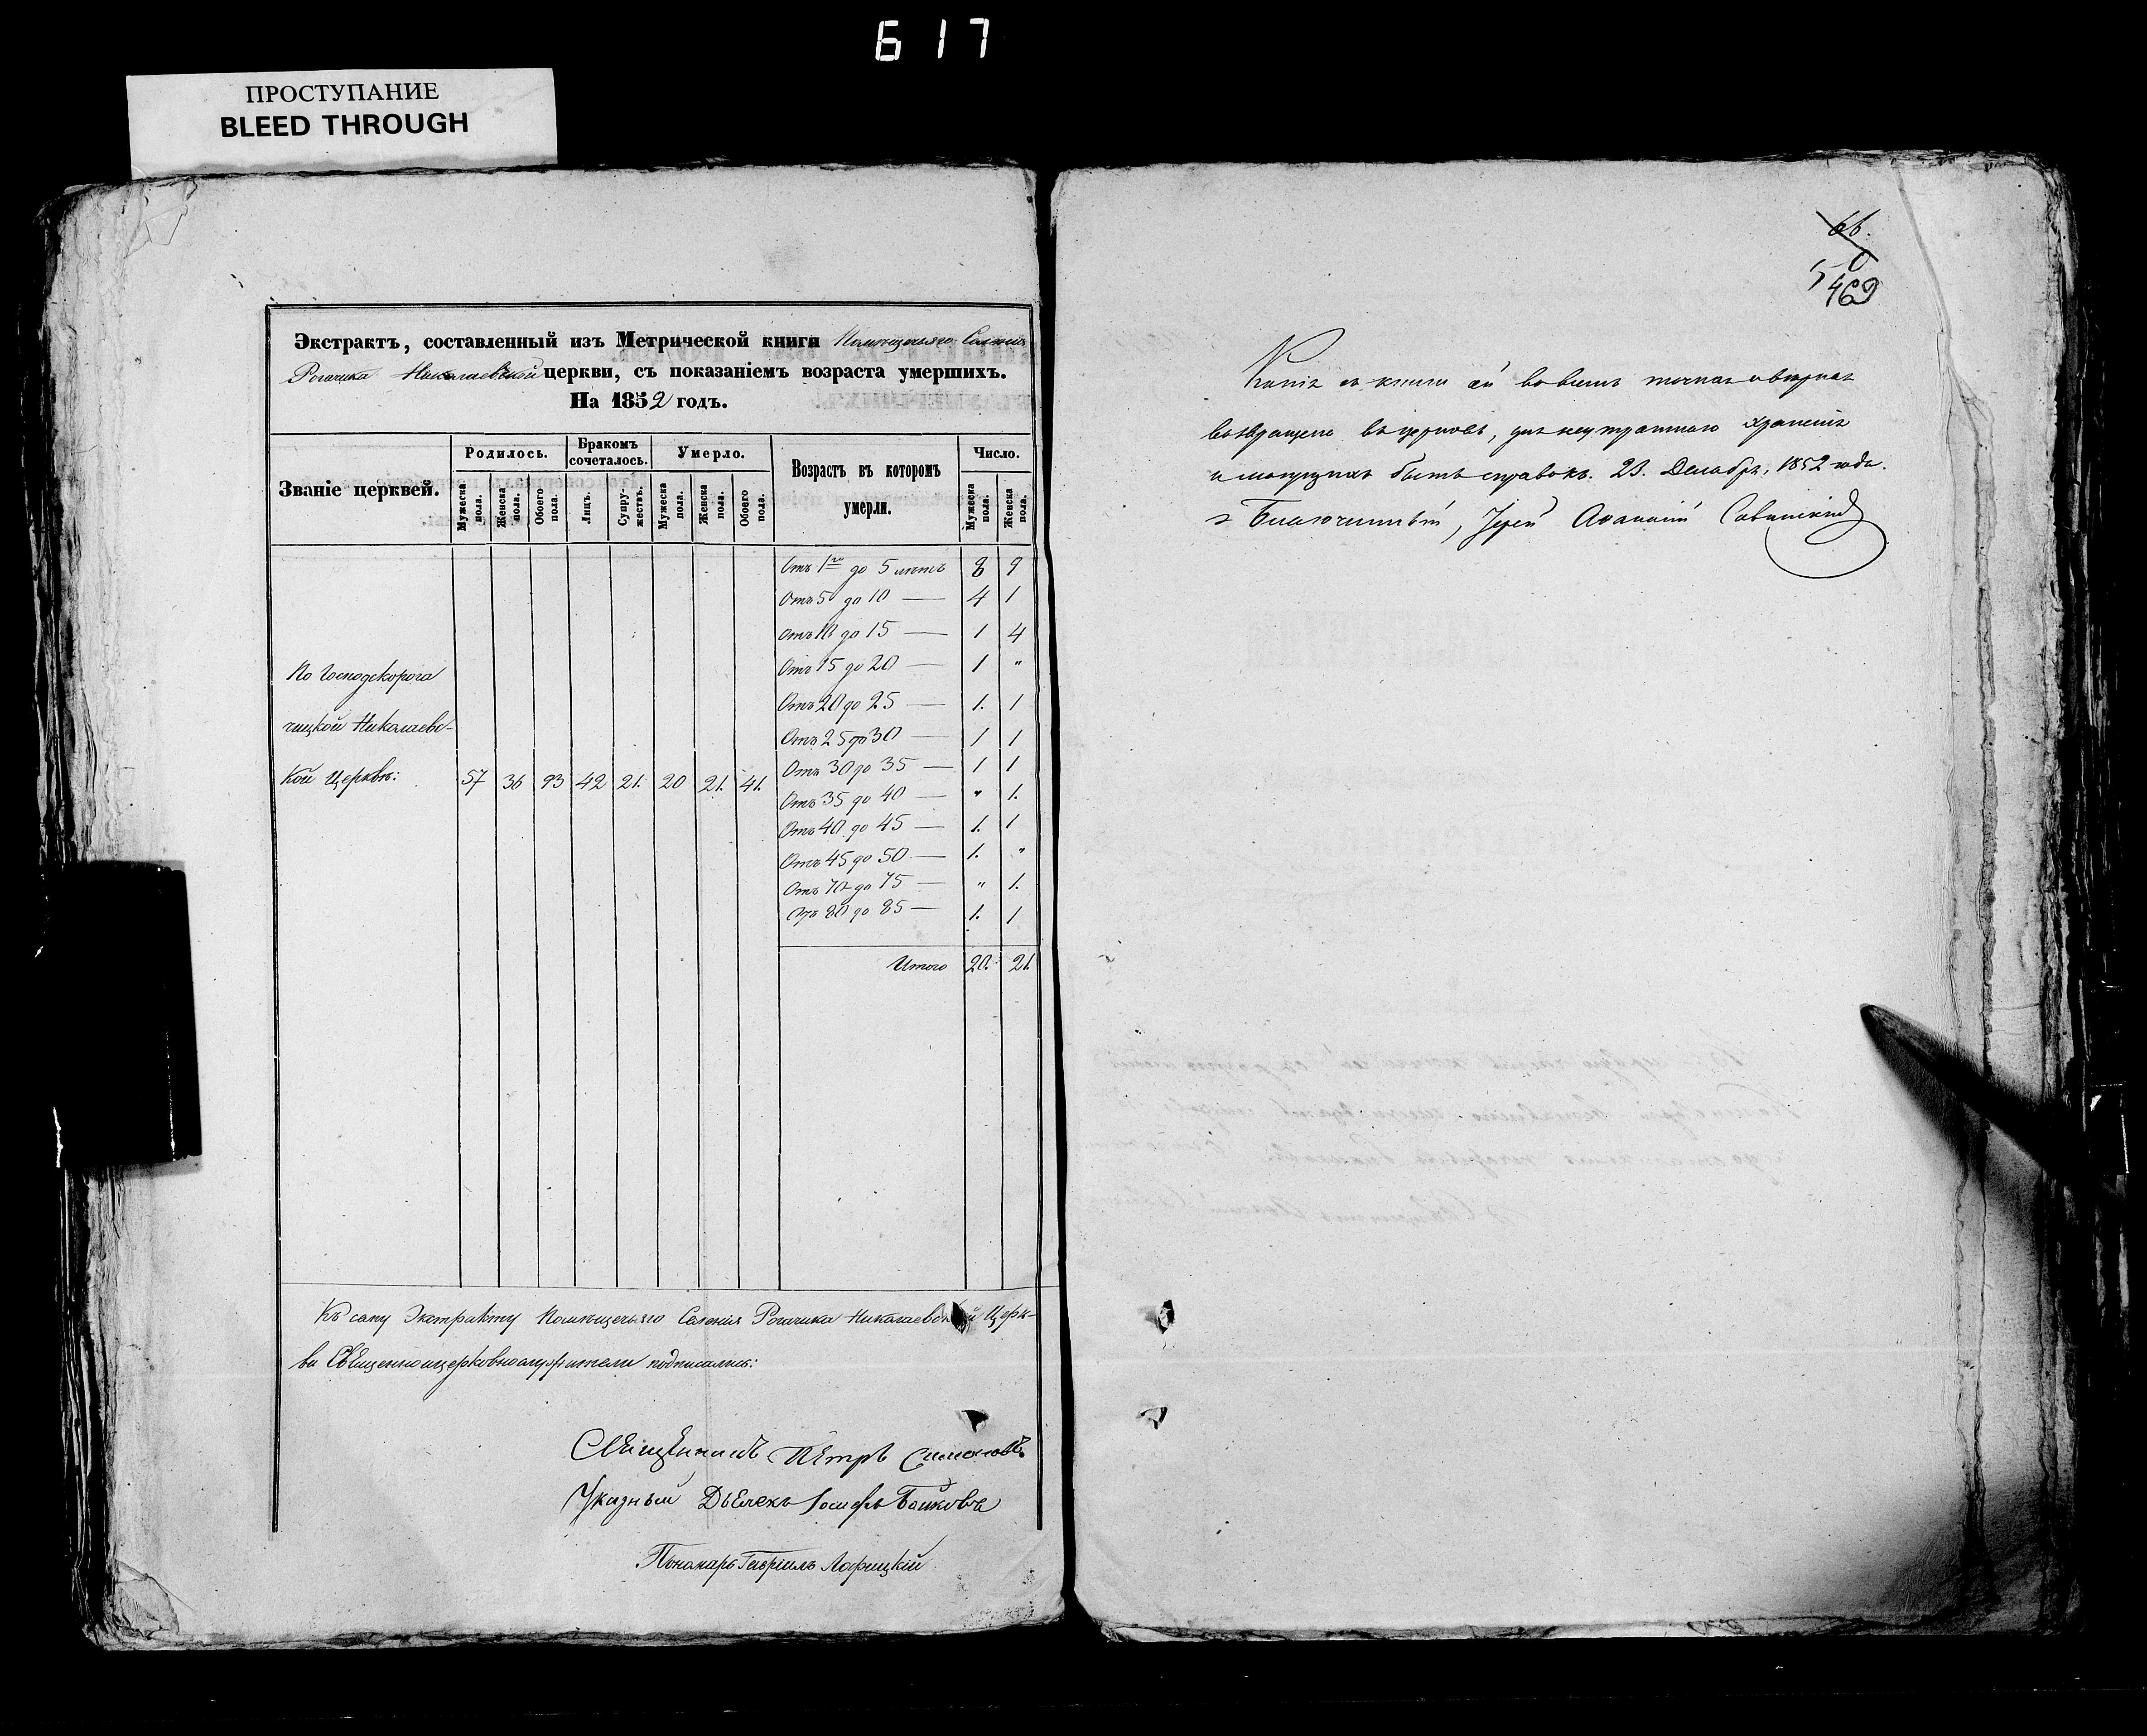 617
ПРОСТУПАНИЕ
BLEED THROUGH
Экстрактъ, составленный изъ Метрической книги Помѣщичьяго Селенія
Рогачика Николаевской церкви, съ показаніемъ возраста умершихъ.
На 1852 годъ.
Званіе церквей.
Родилось.
Бракомъ сочеталось.
Умерло.
Возрастъ въ которомъ умерли.
Число.
Мужеска пола.
Женска пола.
Обоего пола.
Лицъ.
Супружествъ.
Мужеска пола.
Женска пола.
Обоего пола.
Мужеска пола.
Женска пола.
Отъ 1го до 5 лѣтъ 8 9
Отъ 5 до 10 — 4 1
Отъ 10 до 15 — 1 4
Отъ 15 до 20 — 1 "
Отъ 20 до 25 — 1. 1
Отъ 25 до 30 — 1 1
Отъ 30 до 35 — 1 1
Отъ 35 до 40 — " 1.
Отъ 40 до 45 — 1. 1
Отъ 45 до 50 — 1. "
Отъ 70 до 75 — " 1.
Отъ 80 до 85 — 1. 1
Итого 20. 21.
По Господскорога
чицкой Николаевс-
кой Церквѣ: 57 36 93 42 21. 20 21. 41.
Къ сему Экстракту Помѣщичьяго Селенія Рогачика Николаевской Церк-
ви Священноицерковнослужители подписались:
Священникъ Петръ Симоновъ
Указный Дьячекъ Іосифъ Бойковъ
Пономарь Гавріилъ
66.
469
Копія съ книги сей во всемъ точная овѣрная
возвращена въ церковь, для неутратнаго храненія
и могущихъ быть справокъ. 23. Декабря, 1852 года.
Благочинный, Іерей Аѳанасій Савинскій